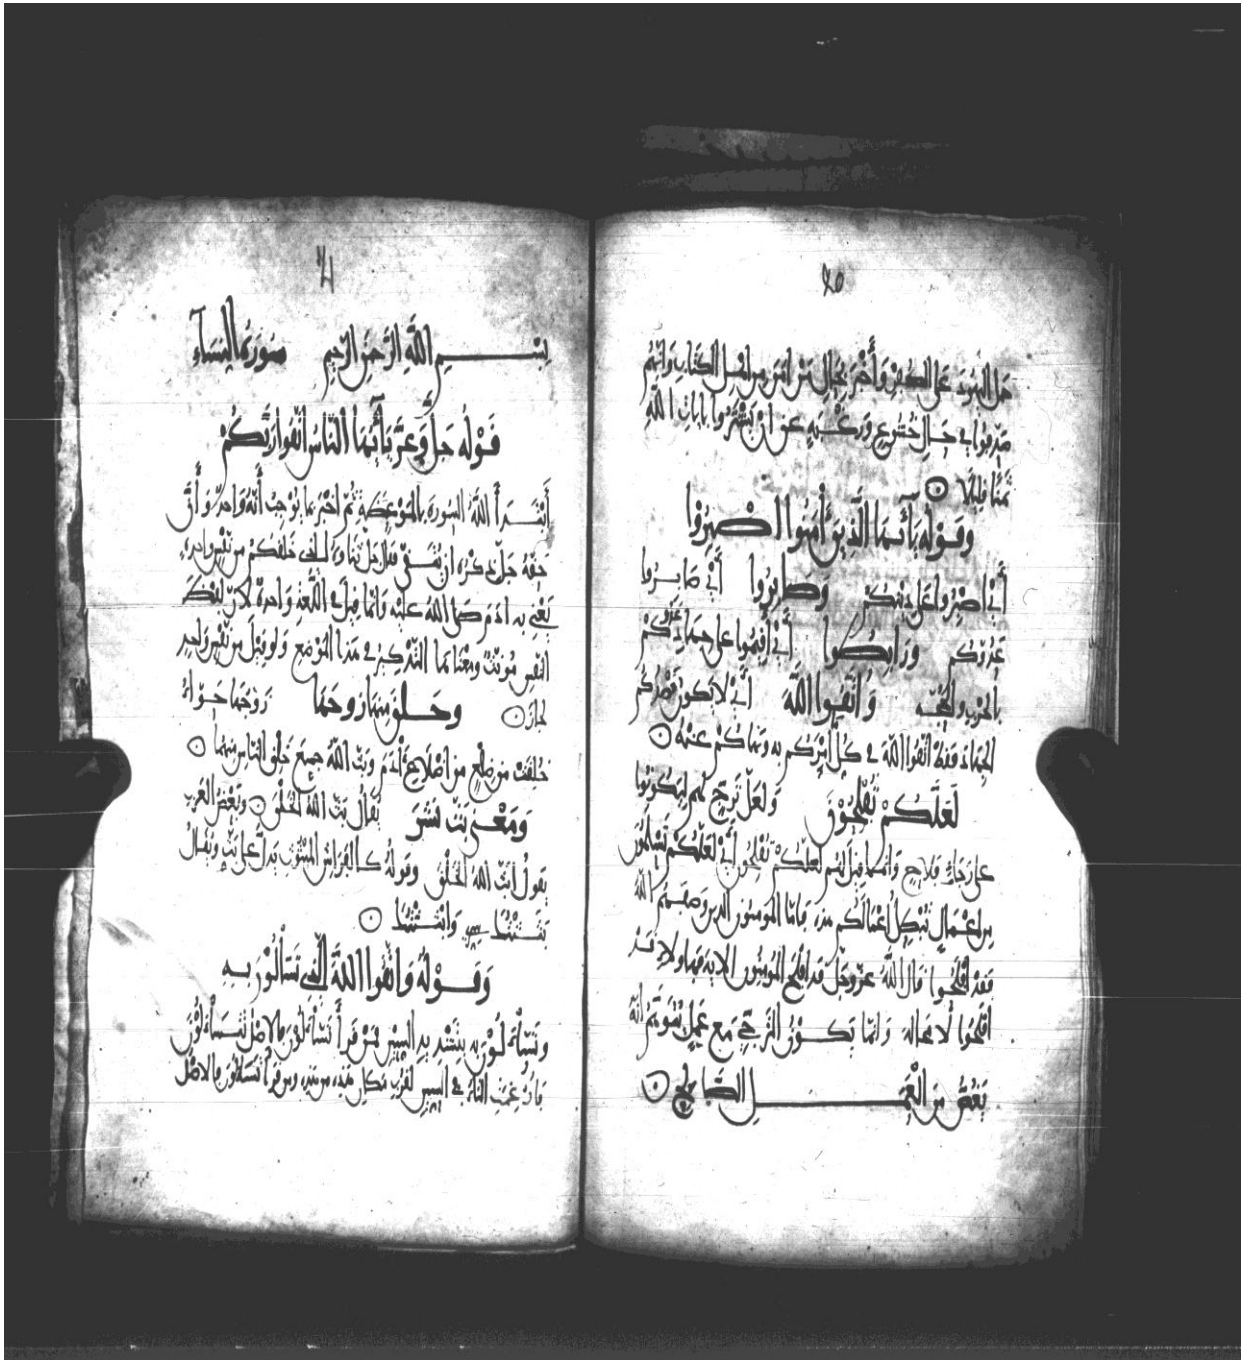 حمل اليهود على الكفر وأخبر بحال من آمن من أهل الكتاب وأنهم
صدقوا في حال خشوع عن أن يشتروا بآيات الله
ثمنا قليلا
وقوله يأيها الذين آمنوا اصبروا
أي اصبروا على دينكم وصابروا أي صابروا
عدوكم ورابطوا أي أقيموا على جهاد عدوكم
بالحرب والحجة واتقوا الله أي لا يكون قصدكم
الجهاد فقط اتقوا الله في كل أمركم به ونهاكم عنه
لعلكم تفلحون ولعل ترج لهم ليكونوا
على رجاء فلاح وإنما قيل لهم لعلكم تفلحون أي لعلكم تسلمون
من أعمال تبطل أعمالكم هذه فأما المؤمنون الذين وصفهم الله
فقد أفلحوا قال الله عز وجل قد أفلح المؤمنون إلى فهاولاء قد
أفلحوا لا محالة وإنما يكون الترجي مع عمل يتوهم أنه
بعض من العمل الصالح
بسم الله الرحمن الرحيم سورة النساء
قوله جل وعز يأيها الناس اتقوا ربكم
ابتدأ الله السورة بالموعظة ثم أخبر بما يوجب أنه واحد وأن
حقه جل ذكره أن يتقى فقال جل ثناؤه الذي خلقكم من نفس واحدة
يعني به آدم صلى الله عليه وإنما قيل في اللغة واحدة لأن لفظ
النفس مؤنث ومعناها التذكير في هذا الموضع ولو قيل من نفس واحد
لجاز وخلق منها زوجها زوجها حواء
خلقت من ضلع من أضلاع آدم وبث الله جميع خلق الناس منهما
ومعنى بث نشر يقال بث الله الخلق وبعض العرب
يقول أبث الله الخلق وقوله كالفراش المبثوث يدل على بث ويقال
بثثتك سري وأبثثتك
وقوله واتقوا الله الذي تسألون به
وتساءلون به بتشديد السين فمن قرأ تساءلون فالأصل تتساءلون
فأدغمت التاء في السين لقرب مكان هذه من هذه ومن قرأ تساءلون فالأصل